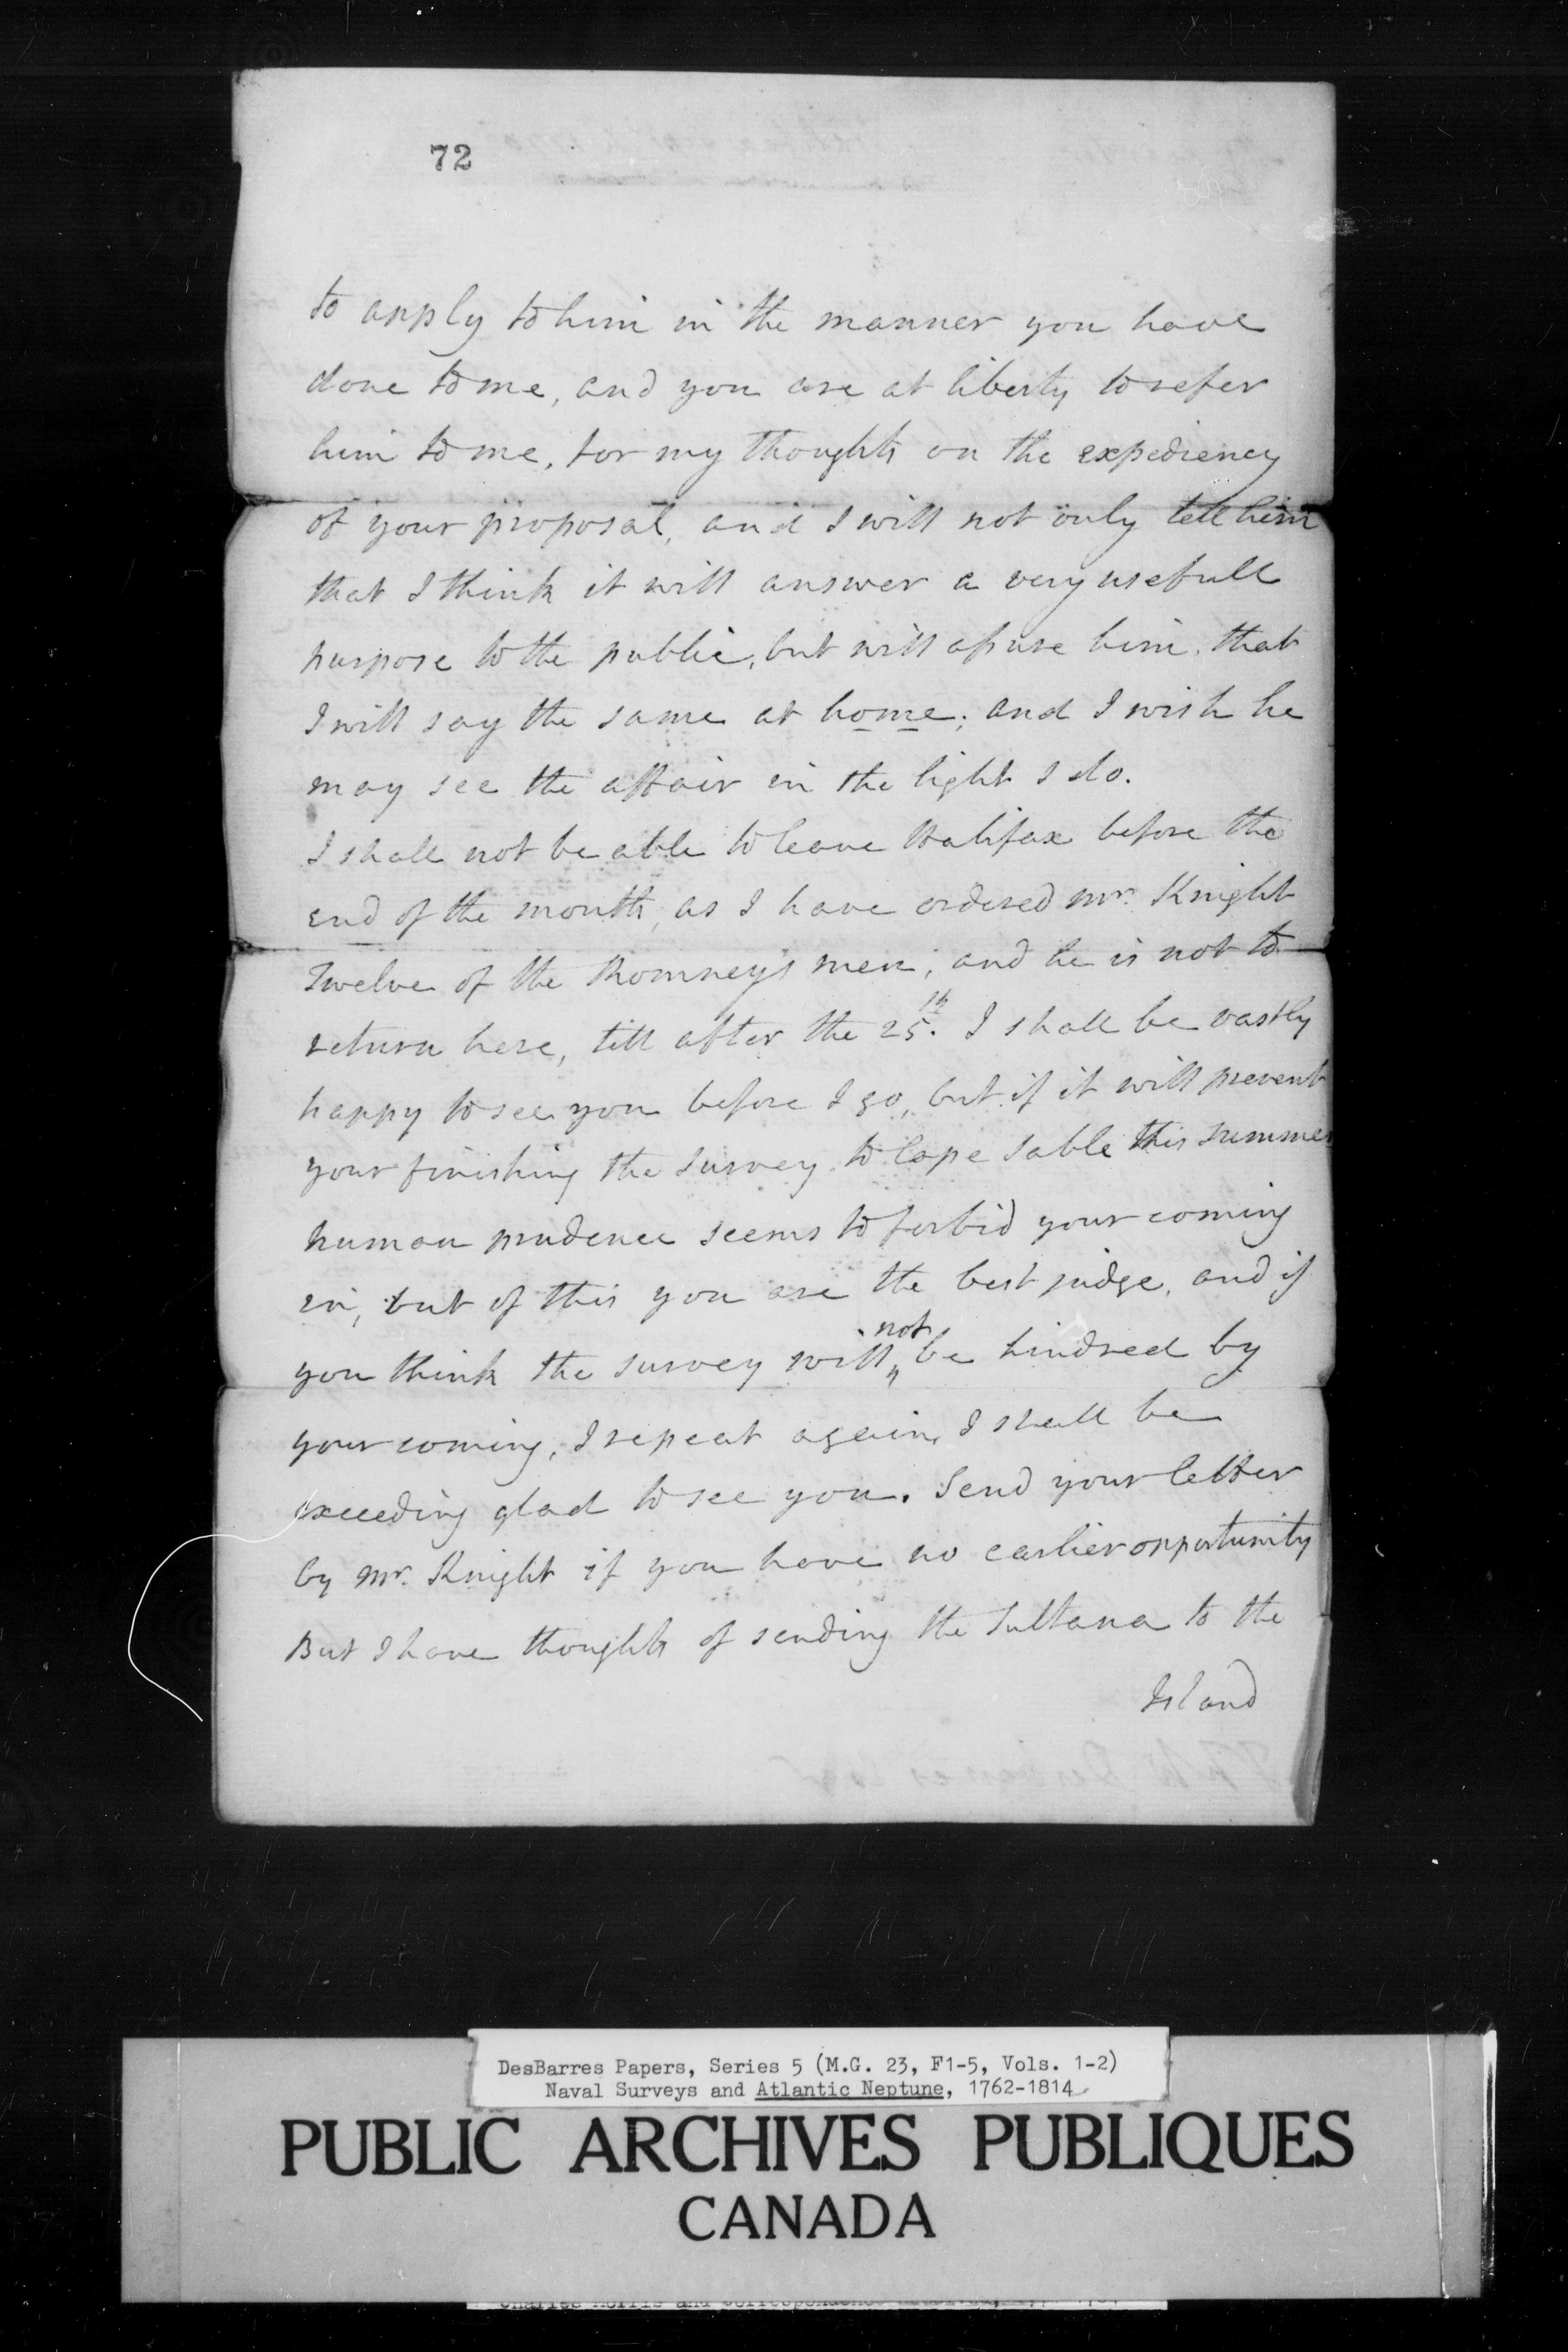 72
to apply to him in the manner you have
done to me, and you are at liberty to refer
him to me, for my thoughts on the expediency
of your proposal, and I will not only tell him
that I think it will answer a very usefull
purpose to the public, but will assure him, that
I will say the same at home; and I wish he
may see the affair in the light I do.
I shall not be able to leave Halifax before the
end of the month, as I have ordered Mr. Knight
Twelve of the Romney's men, and he is not to
return here, till after the 25th. I shall be vastly
happy to see you before I go, but if it will prevent
your finishing the survey to Cape Sable this summer
human prudence seems to forbid your coming
in, but of this you are the best judge, and if
you think the survey will not be hindred by
your coming, I repeat again, I shall be
exceeding glad to see you. Send your letter
by Mr. Knight if you have no earlier opportunity
But I have thoughts of sending the Sultana to the
Island
DesBarres Papers, Series 5 (M.G. 23, F1-5, Vols. 1-2)
Naval Surveys and Atlantic Neptune, 1762-1814
PUBLIC ARCHIVES PUBLIQUES
CANADA